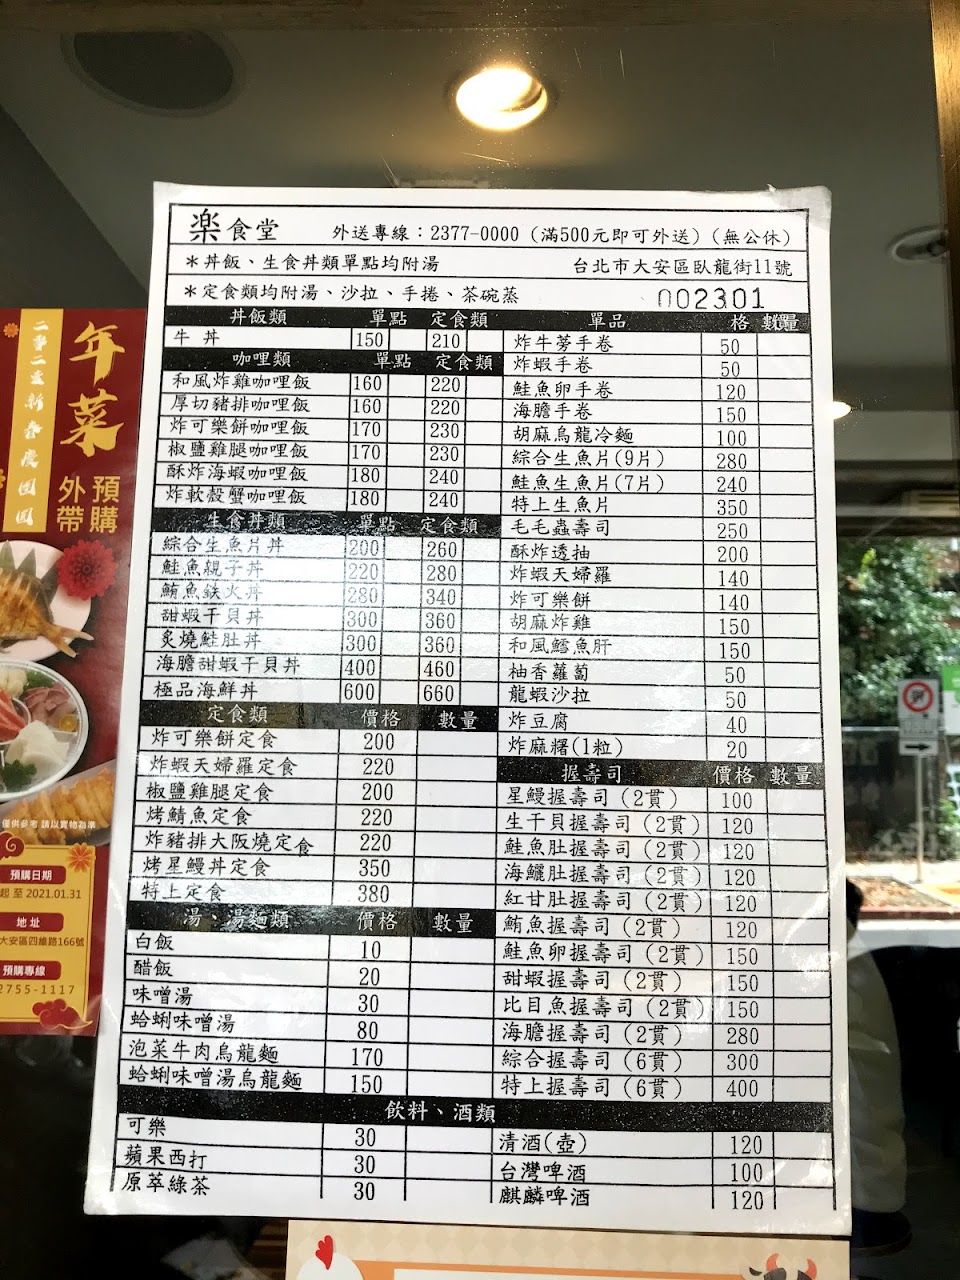 楽食堂 外送專線：2377-0000 (滿500元即可外送) (無公休)
＊丼飯、生食丼類單點均附湯 台北市大安區臥龍街11號
＊定食類均附湯、沙拉、手捲、茶碗蒸 002301
丼飯類 單點 定食類
牛丼 150 210
咖哩類 單點 定食類
和風炸雞咖哩飯 160 220
厚切豬排咖哩飯 160 220
炸可樂餅咖哩飯 170 230
椒鹽雞腿咖哩飯 170 230
酥炸海蝦咖哩飯 180 240
炸軟殼蟹咖哩飯 180 240
生食丼類 單點 定食類
綜合生魚片丼 200 260
鮭魚親子丼 220 280
鮪魚鉄火丼 280 340
甜蝦干貝丼 300 360
炙燒鮭肚丼 300 360
海膽甜蝦干貝丼 400 460
極品海鮮丼 600 660
定食類 價格 數量
炸可樂餅定食 200
炸蝦天婦羅定食 220
椒鹽雞腿定食 200
烤鯖魚定食 220
炸豬排大阪燒定食 220
烤星鰻丼定食 350
特上定食 380
湯、湯麵類 價格 數量
白飯 10
醋飯 20
味噌湯 30
蛤蜊味噌湯 80
泡菜牛肉烏龍麵 170
蛤蜊味噌湯烏龍麵 150
單品 格 數量
炸牛蒡手卷 50
炸蝦手卷 50
鮭魚卵手卷 120
海膽手卷 150
胡麻烏龍冷麵 100
綜合生魚片(9片) 280
鮭魚生魚片(7片) 240
特上生魚片 350
毛毛蟲壽司 250
酥炸透抽 200
炸蝦天婦羅 140
炸可樂餅 140
胡麻炸雞 150
和風鱈魚肝 150
柚香蘿蔔 50
龍蝦沙拉 50
炸豆腐 40
炸麻糬(1粒) 20
握壽司 價格 數量
星鰻握壽司 (2貫) 100
生干貝握壽司 (2貫) 120
鮭魚肚握壽司 (2貫) 120
海鱺肚握壽司 (2貫) 120
紅甘肚握壽司 (2貫) 120
鮪魚握壽司 (2貫) 120
鮭魚卵握壽司 (2貫) 150
甜蝦握壽司 (2貫) 150
比目魚握壽司 (2貫) 150
海膽握壽司 (2貫) 280
綜合握壽司 (6貫) 300
特上握壽司 (6貫) 400
飲料、酒類
可樂 30
蘋果西打 30
原萃綠茶 30
清酒(壺) 120
台灣啤酒 100
麒麟啤酒 120
年菜
預購
外帶
僅供參考 請以實物為準
預購日期
起至 2021.01.31
地址
大安區四維路166號
預購專線
2755-1117